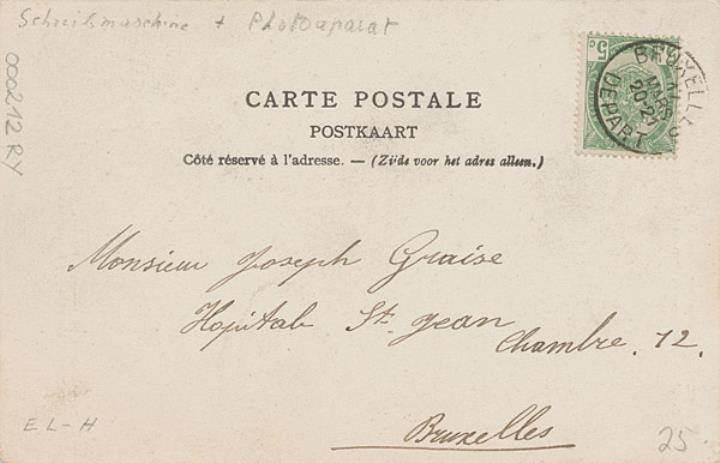 Schreibmaschine + Photoaparat
000212 RY
5 c
BRUXELLES
MARS
20-21
DEPART
CARTE POSTALE
POSTKAART
Côté réservé à l'adresse. — (Zijde voor het adres alleen.)
Monsieur Joseph Graise
Hopitale St. Jean
Chambre. 12.
Bruxelles
EL-H
25